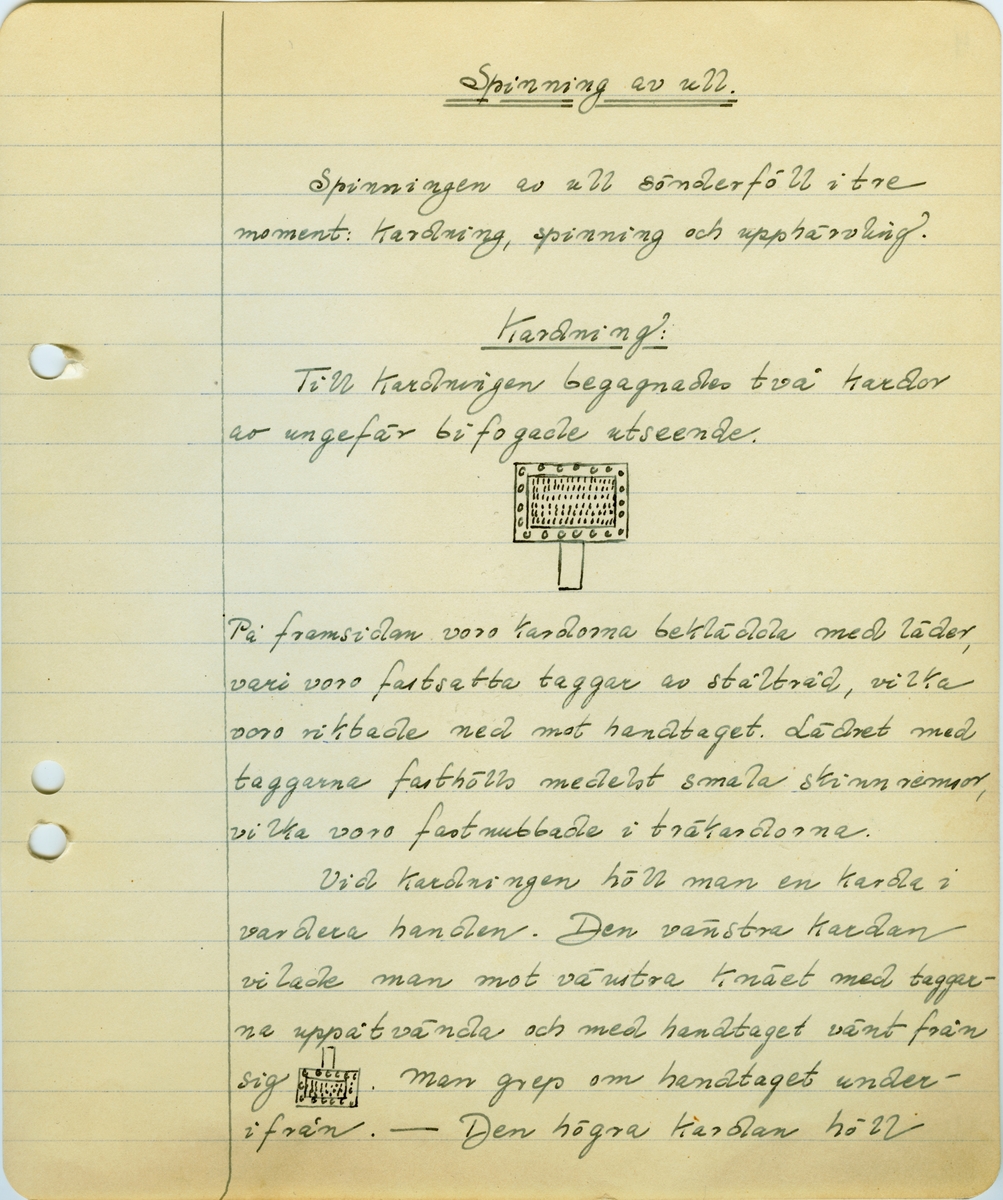 Spinning av ull.
Spinningen av ull sönderföll i tre
moment: Kardning, spinning och upphärvling.
Kardning:
Till kardningen begagnades två kardor
av ungefär bifogade utseende.
På framsidan voro kardorna beklädda med läder,
vari voro fastsatta taggar av ståltråd, vilka
voro riktade ned mot handtaget. Lädret med
taggarna fasthölls medelst smala skinnremsor,
vilka voro fastnubbade i träkardorna.
Vid kardningen höll man en karda i
vardera handen. Den vänstra kardan
vilade man mot vänstra knäet med taggar-
na uppåtvända och med handtaget vänt från
sig . Man grep om handtaget under-
ifrån. — Den högra kardan höll